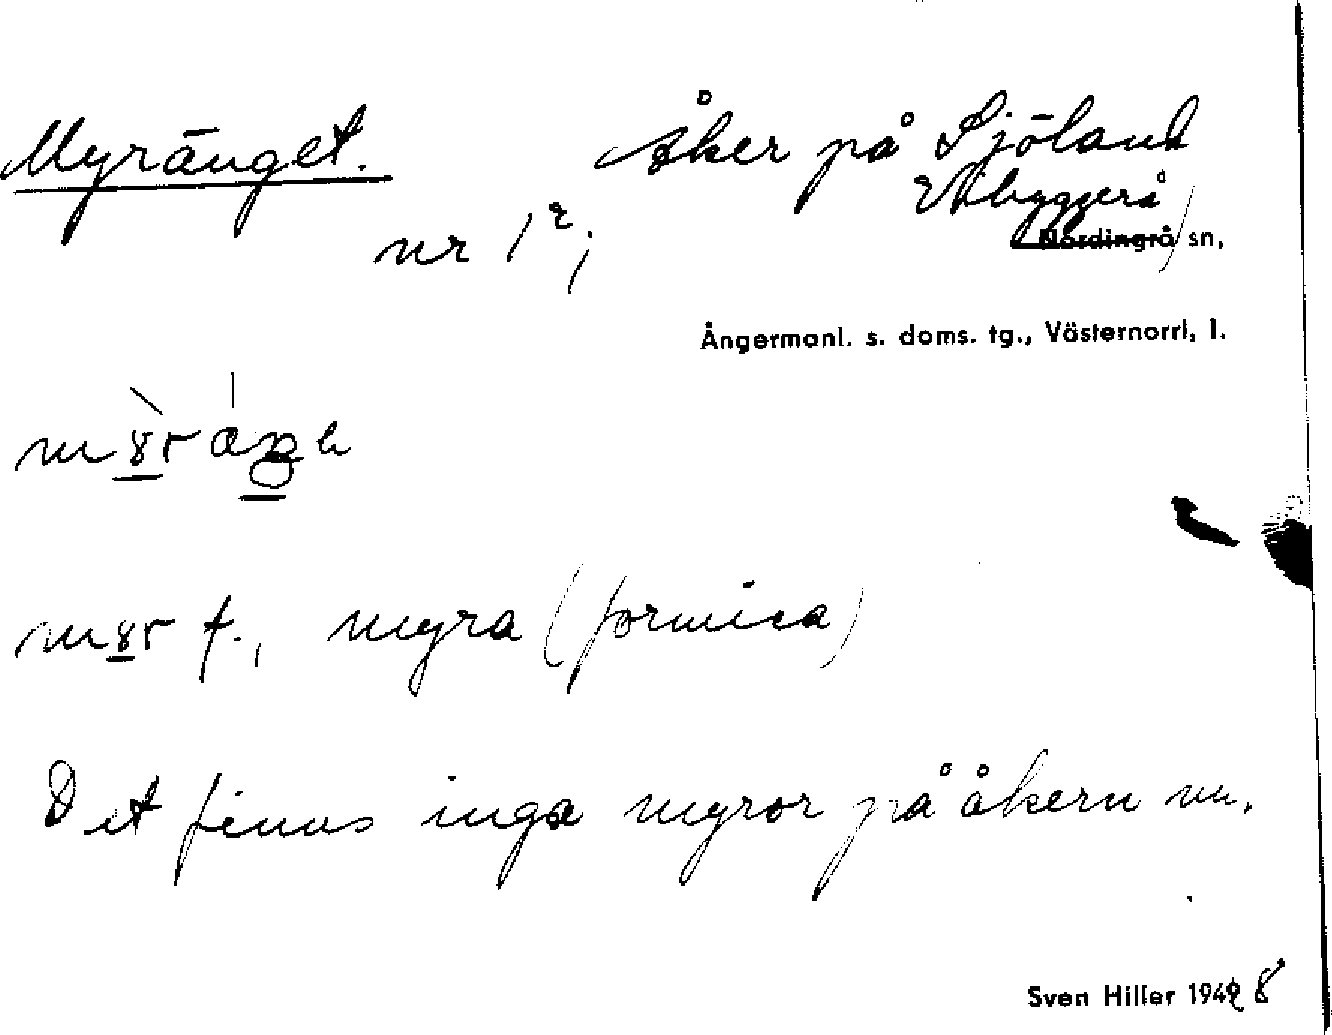 Myränget.
Åker på Sjöland
nr 1²;
Vibyggerå
Nordingrå sn,
Ångermanl. s. doms. tg., Västernorrl, l.
f., myra (formica)
Det finns inga myror på åkern nu.
Sven Hiller 1942 8